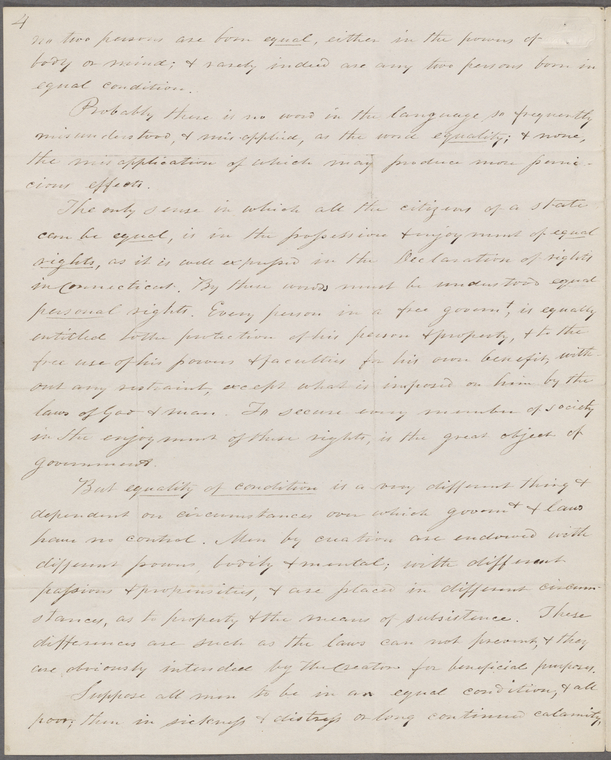 4
no two persons are born equal, either in the powers of
body or mind; & rarely indeed are any two persons born in
equal condition.
Probably there is no word in the language so frequently
misunderstood, & misapplied, as the word equality; & none,
the misapplication of which may produce more perni-
cious effects.
The only sense in which all the citizens of a state
can be equal, is in the possession & enjoyment of equal
rights, as it is well expressed in the Declaration of rights
in Connecticut. By these words must be understood equal
personal rights. Every person in a free governt, is equally
entitled to the protection of his person & property, & to the
free use of his powers & faculties for his own benefit, with-
out any restraint, except what is imposed on him by the
laws of God & man. To secure every member of society
in the enjoyment of these rights, is the great object of
government.
But equality of condition is a very different thing &
dependent on circumstances over which governt & laws
have no control. Men by creation are endowed with
different powers bodily & mental; with different
passions & propensities, & are placed in different circum-
stances, as to property & the means of subsistence. These
differences are such as the laws can not prevent, & they
are obviously intended by the Creator for beneficial purposes.
Suppose all men to be in an equal condition, & all
poor; then in sickness & distress or long continued calamity,